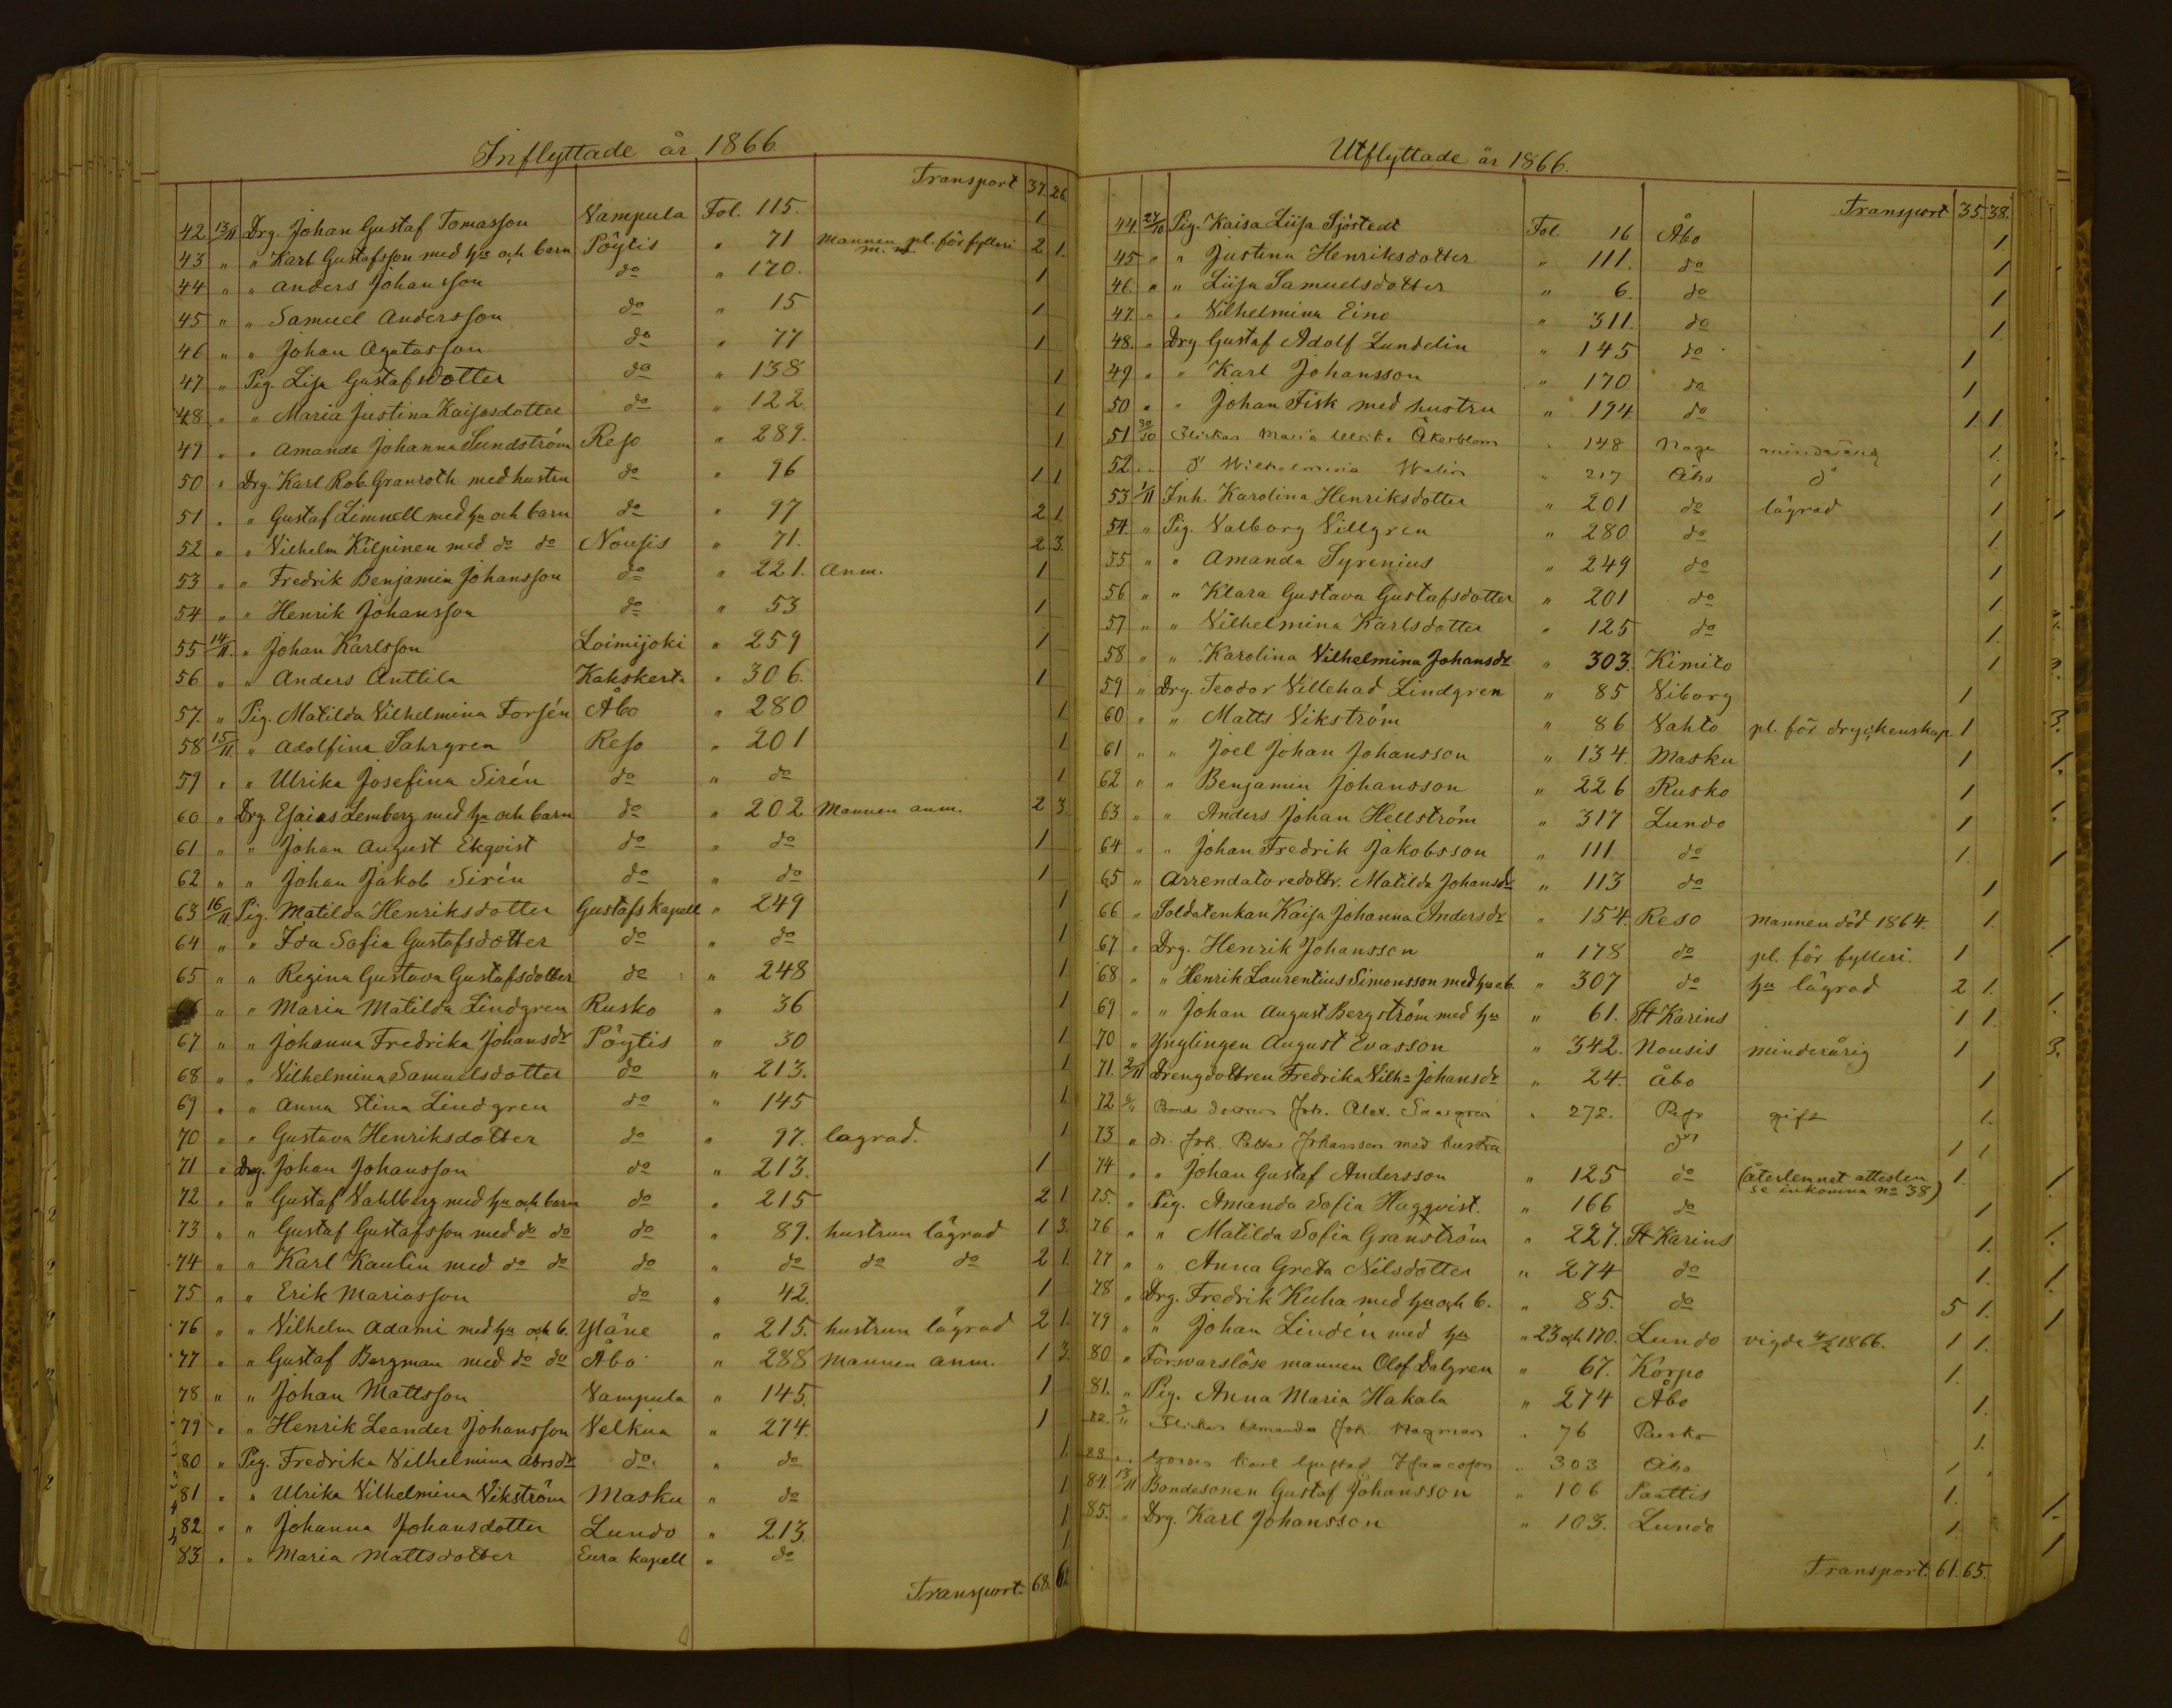 Inflyttade år 1866.
Transport 37. 26.
42 13/11 Drg. Johan Gustaf Tomasson Vampula Fol. 115. 1
43 " " Karl Gustafsson med hu och barn Pöytis " 71 Mannen pl. för fylleri m. m. 2 1.
44 " " Anders Johansson do " 170. 1
45 " " Samuel Andersson do " 15 1
46 " " Johan Agatasson do " 77 1
47 " Pig. Lisa Gustafsdotter do " 138 1
48 " " Maria Justina Kaisasdotter do " 122. 1
49 " " Amanda Johanna Sundström Reso " 289. 1
50 " Drg. Karl Rob. Granroth med hustru do " 96 1 1
51 " " Gustaf Limnell med hu och barn do " 97 2 1.
52 " " Vilhelm Kilpinen med do do Nousis " 71. 2 3.
53 " " Fredrik Benjamin Johansson do " 221. Anm. 1
54 " " Henrik Johansson do " 53 1
55 14/11 " Johan Karlsson Loimijoki " 259 1
56 " " Anders Anttila Kakskerta " 306. 1
57. " Pig. Matilda Vilhelmina Forsén Åbo " 280 1
58 15/11 " Adolfina Sahrgren Reso " 201 1
59 " " Ulrika Josefina Sirén do " do 1
60 " Drg Esaias Lemberg med hu och barn do " 202 Mannen anm. 2 3.
61 " " Johan August Ekqvist do " do 1
62 " " Johan Jakob Sirén do " do 1
63 16/11 Pig. Matilda Henriksdotter Gustafs Kapell " 249 1
64 " " Ida Sofia Gustafsdotter do " do 1
65 " " Regina Gustava Gustafsdotter do " 248 1
" " Maria Matilda Lindgren Rusko " 36 1
67 " " Johanna Fredrika Johansdr Pöytis " 30 1
68 " " Vilhelmina Samuelsdotter do " 213. 1
69 " " Anna Stina Lindgren do " 145 1.
70 " " Gustava Henriksdotter do " 97. lagrad. 1
71 " Drg. Johan Johansson do " 213. 1
72 " " Gustaf Vahlberg med hu och barn do " 215 2 1
73 " " Gustaf Gustafsson med do do do " 89. hustrun lägrad 1 3.
74 " " Karl Kaulin med do do do " do do do 2 1.
75 " " Erik Mariasson do " 42. 1
76 " " Vilhelm Adami med hu och b. Yläne " 215. hustrun lägrad 2 1.
77 " " Gustaf Bergman med do do Åbo " 288 Mannen anm. 1 3.
78 " " Johan Mattsson Vampula " 145. 1
79 " " Henrik Leander Johansson Velkua " 274. 1
80 " Pig. Fredrika Vilhelmina Abrsdr do. " do 1.
81 " " Ulrika Vilhelmina Vikström Masku " do 1.
82. " " Johanna Johansdotter Lundo " 213. 1
83. " " Maria Mattsdotter Eura kapell " do 1
Transport. 68. 62.
Utflyttade år 1866.
Transport 35. 38.
44. 27/10 Pig. Kaisa Liisa Sjöstedt Fol. 16 Åbo 1
45 " " Justina Henriksdotter " 111. do 1
46. " " Liisa Samuelsdotter " 6. do 1
47. " " Vilhelmina Eino " 311. do 1.
48. " Drg Gustaf Adolf Lundelin " 145 do 1
49 " " Karl Johansson " 170 do 1
50 " " Johan Fisk med hustru " 194 do 1 1.
51 30/10 Flickan Maria Ulrika Åkerblom " 148 Nagu 1.
52 " " do Wilhelmina Walin " 217 Åbo do 1
53 1/11 Inh. Karolina Henriksdotter " 201 do lägrad 1
54. " Pig. Valborg Villgren " 280 do 1.
55 " " Amanda Syrenius " 249 do 1
56 " " Klara Gustava Gustafsdotter " 201 do 1
57 " " Vilhelmina Karlsdotter " 125 do 1.
58 " " Karolina Vilhelmina Johansdr " 303. Kimito 1
59 " Drg. Teodor Villehad Lindgren " 85 Viborg 1
60 " " Matts Vikström " 86 Vahto pl. för dryckenskap. 1
61 " " Joel Johan Johansson " 134. Masku 1
62 " " Benjamin Johansson " 226 Rusko 1
63 " " Anders Johan Hellström " 317 Lundo 1
64 " " Johan Fredrik Jakobsson " 111 do 1.
65 " Arrendatoredottr. Matilda Johansdr " 113 do 1
66 " Soldatenkan Kaisa Johanna Andersdr " 154. Reso Mannen död 1864. 1.
67 " Drg. Henrik Johansson " 178 do pl. för fylleri. 1
68 " " Henrik Laurentius Simonsson med hu o. b. " 307 do hu lägrad 2 1.
69 " " Johan August Bergström med hu " 61. St Karins 1 1.
70 " Ynglingen August Evasson " 342. Nousis minderårig 1
71. 2/11 Drengdottren Fredrika Vilh-a Johansdr " 24. Åbo 1
72 6/11 Bonde dottren Joh. Alex. " 272. Reso gift 1.
73 " dr. Joh. Petter Johansson med hustru do 1 1
74 " " Johan Gustaf Andersson " 125 do (återlemnat attesten se inkomna No 38) 1.
75. " Pig. Amanda Sofia Hagqvist. " 166 do 1
76 " " Matilda Sofia Granström " 227. St Karins 1.
77 " " Anna Greta Nilsdotter " 274 do 1.
78 " Drg. Fredrik Kuha med hu och b. " 85. do 5 1.
79 " " Johan Lindén med hu " 23 och 170. Lundo vigde 4/2 1866. 1 1.
80 " Försvarslöse mannen Olof Dalgren " 67. Korpo 1.
81. " Pig. Anna Maria Hakala " 274 Åbo 1.
82. 7/11 Flickan Amanda Joh. Hagman " 76 Rusko 1.
83 " " Karl Gustaf " 303 Åbo 1
84. 13/11 Bondesonen Gustaf Johansson " 106 Paattis 1.
85. " Drg. Karl Johansson " 103. Lundo 1.
Transport. 61. 65.